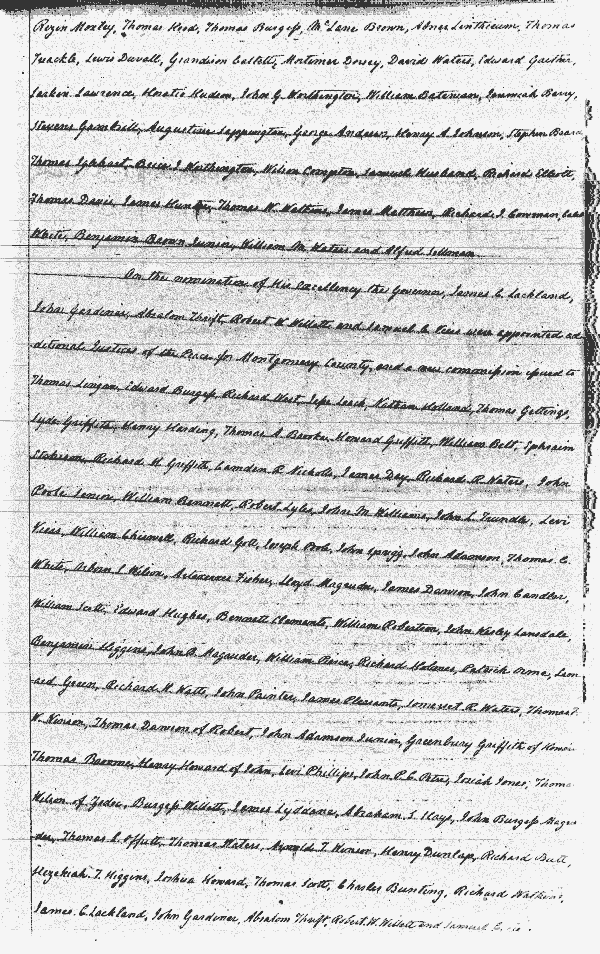 Rezin Moxley, Thomas Hood, Thomas Burgess, McLane Brown, Abner Linthicum, Thomas
Tuackle, Lewis Duvall, Grandison Catlett, Mortimer Dorsey, David Waters, Edward Gaither,
Larkin Lawrence, Horatio Hudson, John G. Worthington, William Bateman, Jeremiah Berry,
Stevens Gambrill, Augustine Sappington, George Andrews, Henry A. Johnson, Stephen Beard
Thomas Iglehart, Brice J. Worthington, Wilson Compton, Samuel Husband, Richard Elliott,
Thomas Davis, James Hunter, Thomas W. Watkins, James Matthews, Richard J. Cowman,
White, Benjamin Brown Junior, William M. Waters and Alfred Sellman
On the nomination of His Excellency the Governor, James C. Lackland,
John Gardiner, Absalom Thrift, Robert W. Willett and Samuel C. were appointed ad
ditional Justices of the Peace for Montgomery County, and a new commission issued to
Thomas Lingan, Edward Burgess, Richard West, Jesse Leach, Nathan Holland, Thomas Gettings,
Lyde Griffith, Henry Harding, Thomas A. Brooke, Howard Griffith, William Belt, Ephraim
Richard H. Griffith, Camden R. Nicholls, James Day, Richard R. Waters, John
Poole Senior, William Bennett, Robert Lyles, John M. Williams, John L. Trundle, Levi
Veirs, William Chiswell, Richard Gott, Joseph Poole, John Sprigg, John Adamson, Thomas C.
White, Wilson, Artaxerxes Fisher, Lloyd Magruder, James Dawson, John Candler,
William Scott, Edward Hughes, Bennett Clements, William Robertson, John Wesley Lansdale,
Benjamin Higgins, John B. Magruder, William Pierce, Richard Holmes, Patrick Orme, Leon
ard Green, Richard H. Watts, John Painter, James Pleasants, Somerset R. Waters, Thomas
W. Howson, Thomas Dawson of Robert, John Adamson Junior, Greenbury Griffith of Howard
Thomas Broome, Henry Howard of John, Levi Phillips, John P. C. Peter, Josiah Jones, Thomas
Wilson of Zadoc, Burgess Willett, James Lyddane, Abraham S. Hays, John Burgess Magru
der, Thomas L. Offutt, Thomas Waters, Arnold T. Winsor, Henry Dunlap, Richard
Hezekiah T. Higgins, Joshua Howard, Thomas Scott, Charles Bunting, Richard Watkins,
James C. Lackland, John Gardiner, Absalom Thrift, Robert W. Willett and Samuel C.